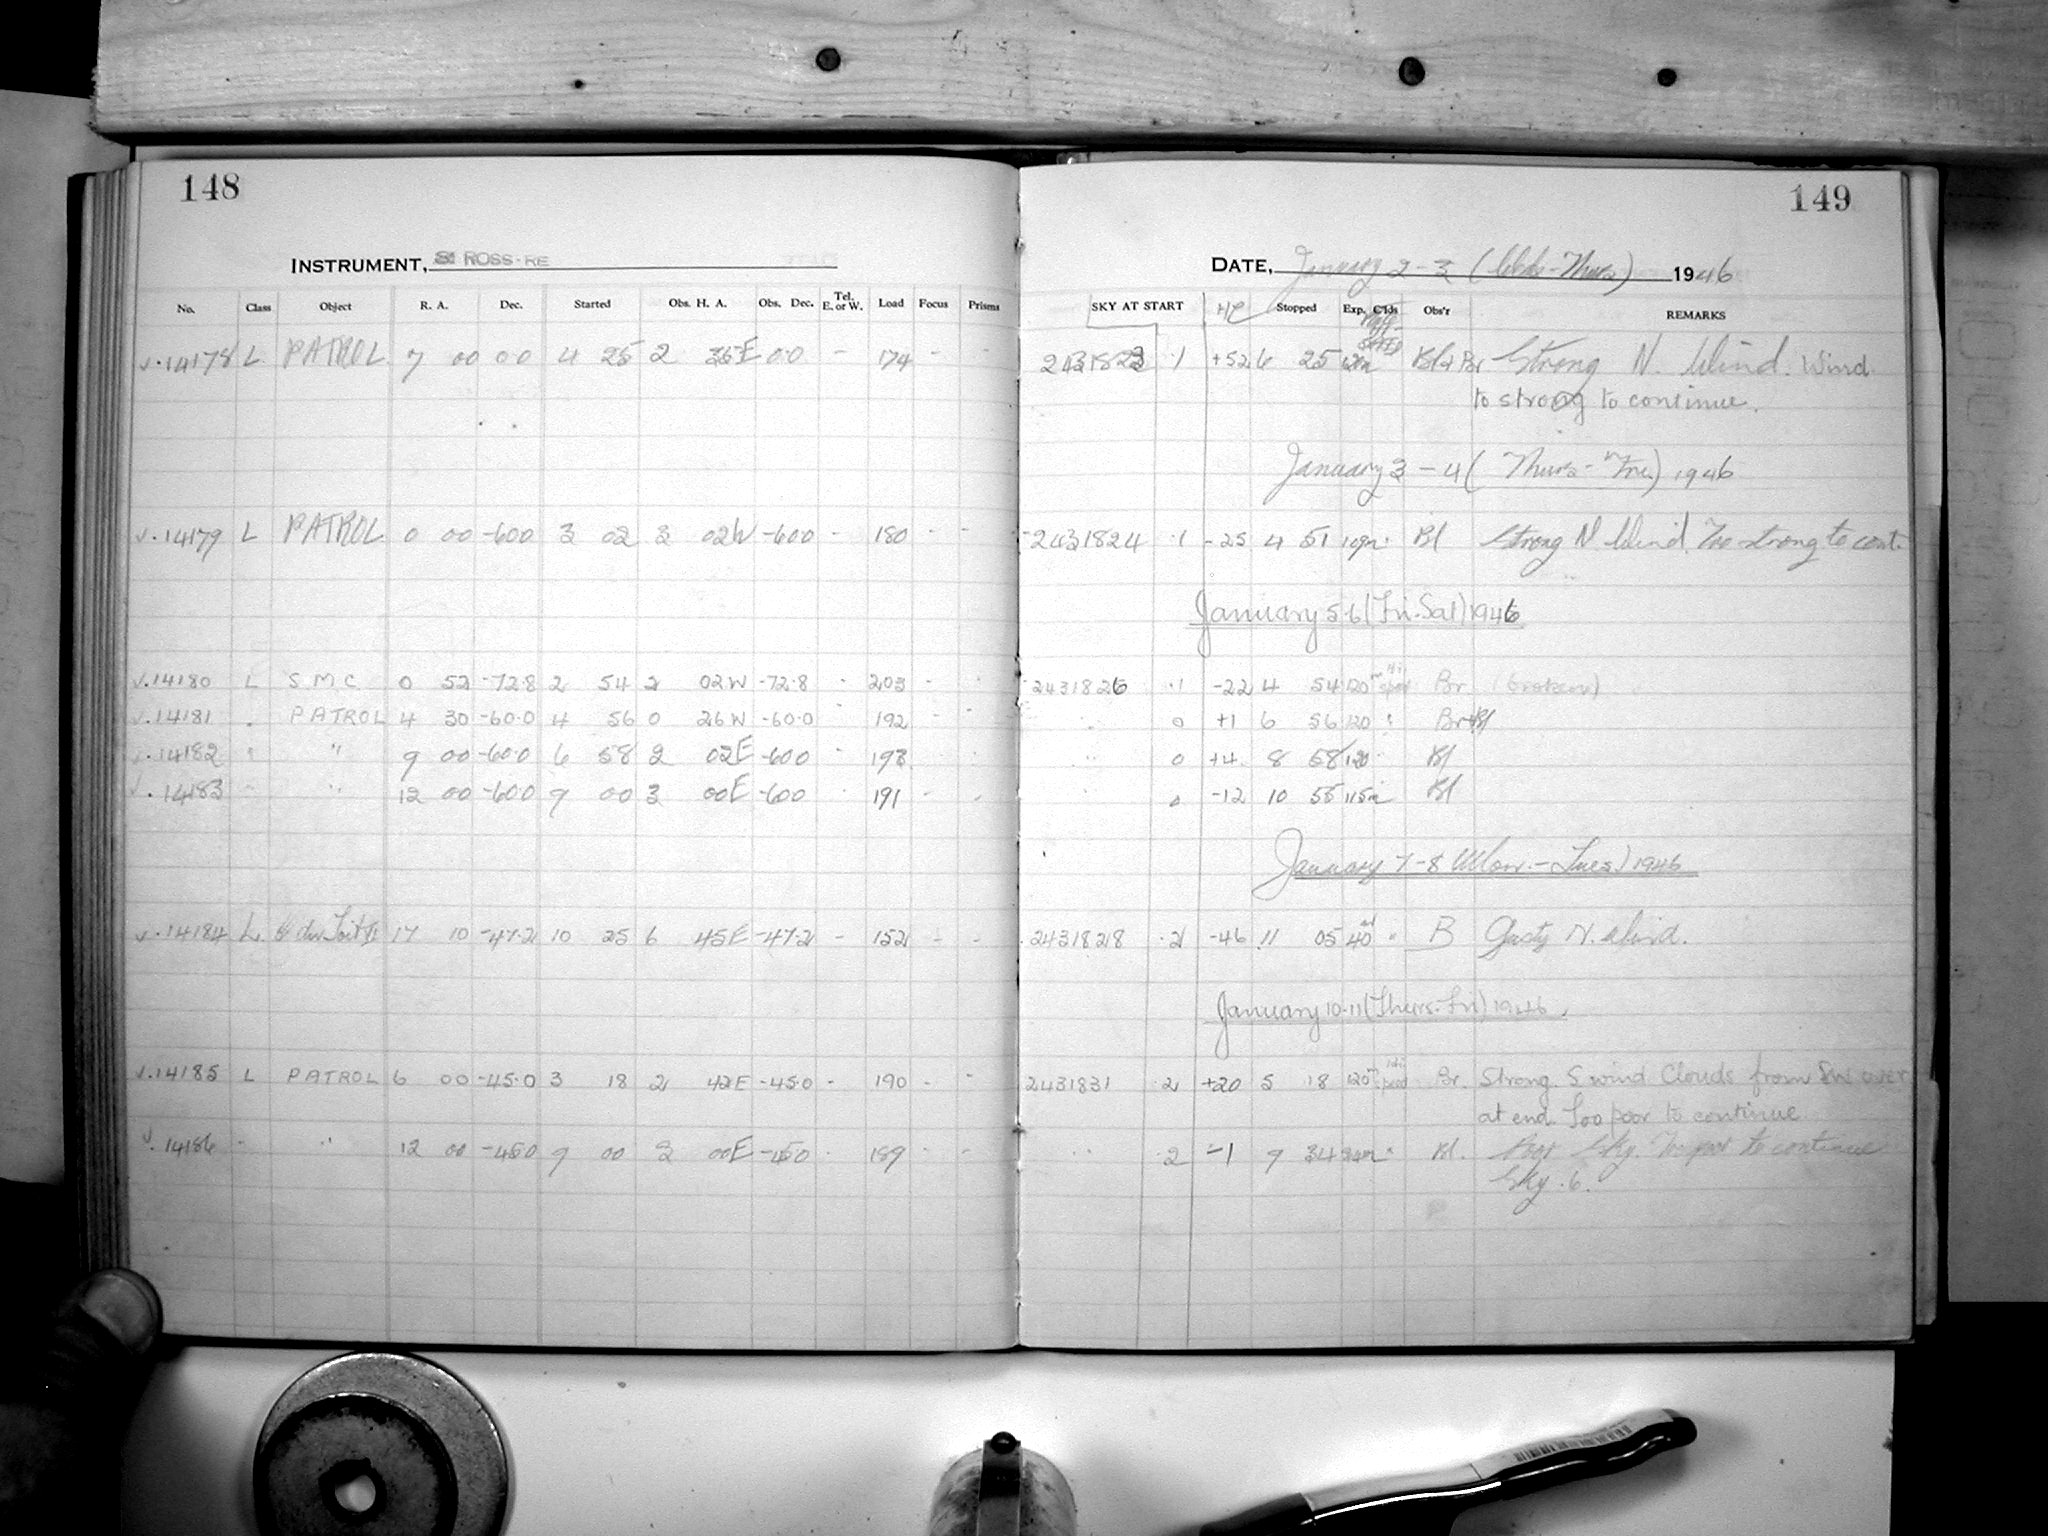 148
INSTRUMENT, ROSS-RE
No. Class Object R. A. Dec. Started Obs. H. A. Obs. Dec. Tel. E. or W. Load Focus Prisms
√.14178 L PATROL 7 00 00 4 25 2 35E 00 - 174 - -
√.14179 L PATROL 0 00 -600 3 02 3 02W -600 - 180 - -
√.14180 L S.M.C. 0 52 -72.8 2 54 2 02W -72.8 - 203 - -
√.14181 " PATROL 4 30 -60.0 4 56 0 26W -60.0 - 192 - -
√.14182 " " 9 00 -60.0 6 58 2 02E -600 - 193
√.14183 " " 12 00 -600 9 00 3 00E -600 - 191 - -
√.14184 L. 17 10 -47.2 10 25 6 45E -47.2 - 152 - -
√.14185 L PATROL 6 00 -45.0 3 18 2 42E -45.0 - 190 - -
√.14186 - " 12 00 -450 9 00 3 00E -450 - 189 - -
149
DATE, January 2-3 (Weds-Thurs) 1946
SKY AT START Stopped Exp. C'lds Obs'r REMARKS
2431823 .1 +52 6 25 120m Bl+Br Strong N. Wind. Wind
to strong to continue.
January 3-4 (Thurs-Fri) 1946
2431824 .1 -25 4 51 109m Bl Strong N. Wind. Too strong to cont.
January 5-6 (Fri-Sat) 1946
2431826 .1 -22 4 54 120m Br (broken)
" 0 +1 6 56 120 " Br+Bl
" 0 +4 8 58 120 Bl
" 0 -12 10 55 115m Bl
January 7-8 (Mon.-Tues) 1946
2431828 .2 -46 11 05 40 " B Gusty N. Wind.
January 10-11 (Thurs-Fri) 1946
2431831 .2 +20 5 18 120m Br. Strong S wind Clouds from SW over
at end Too poor to continue
" .2 -1 9 34 34m " Bl. Poor Sky. Too poor to continue
Sky .6.